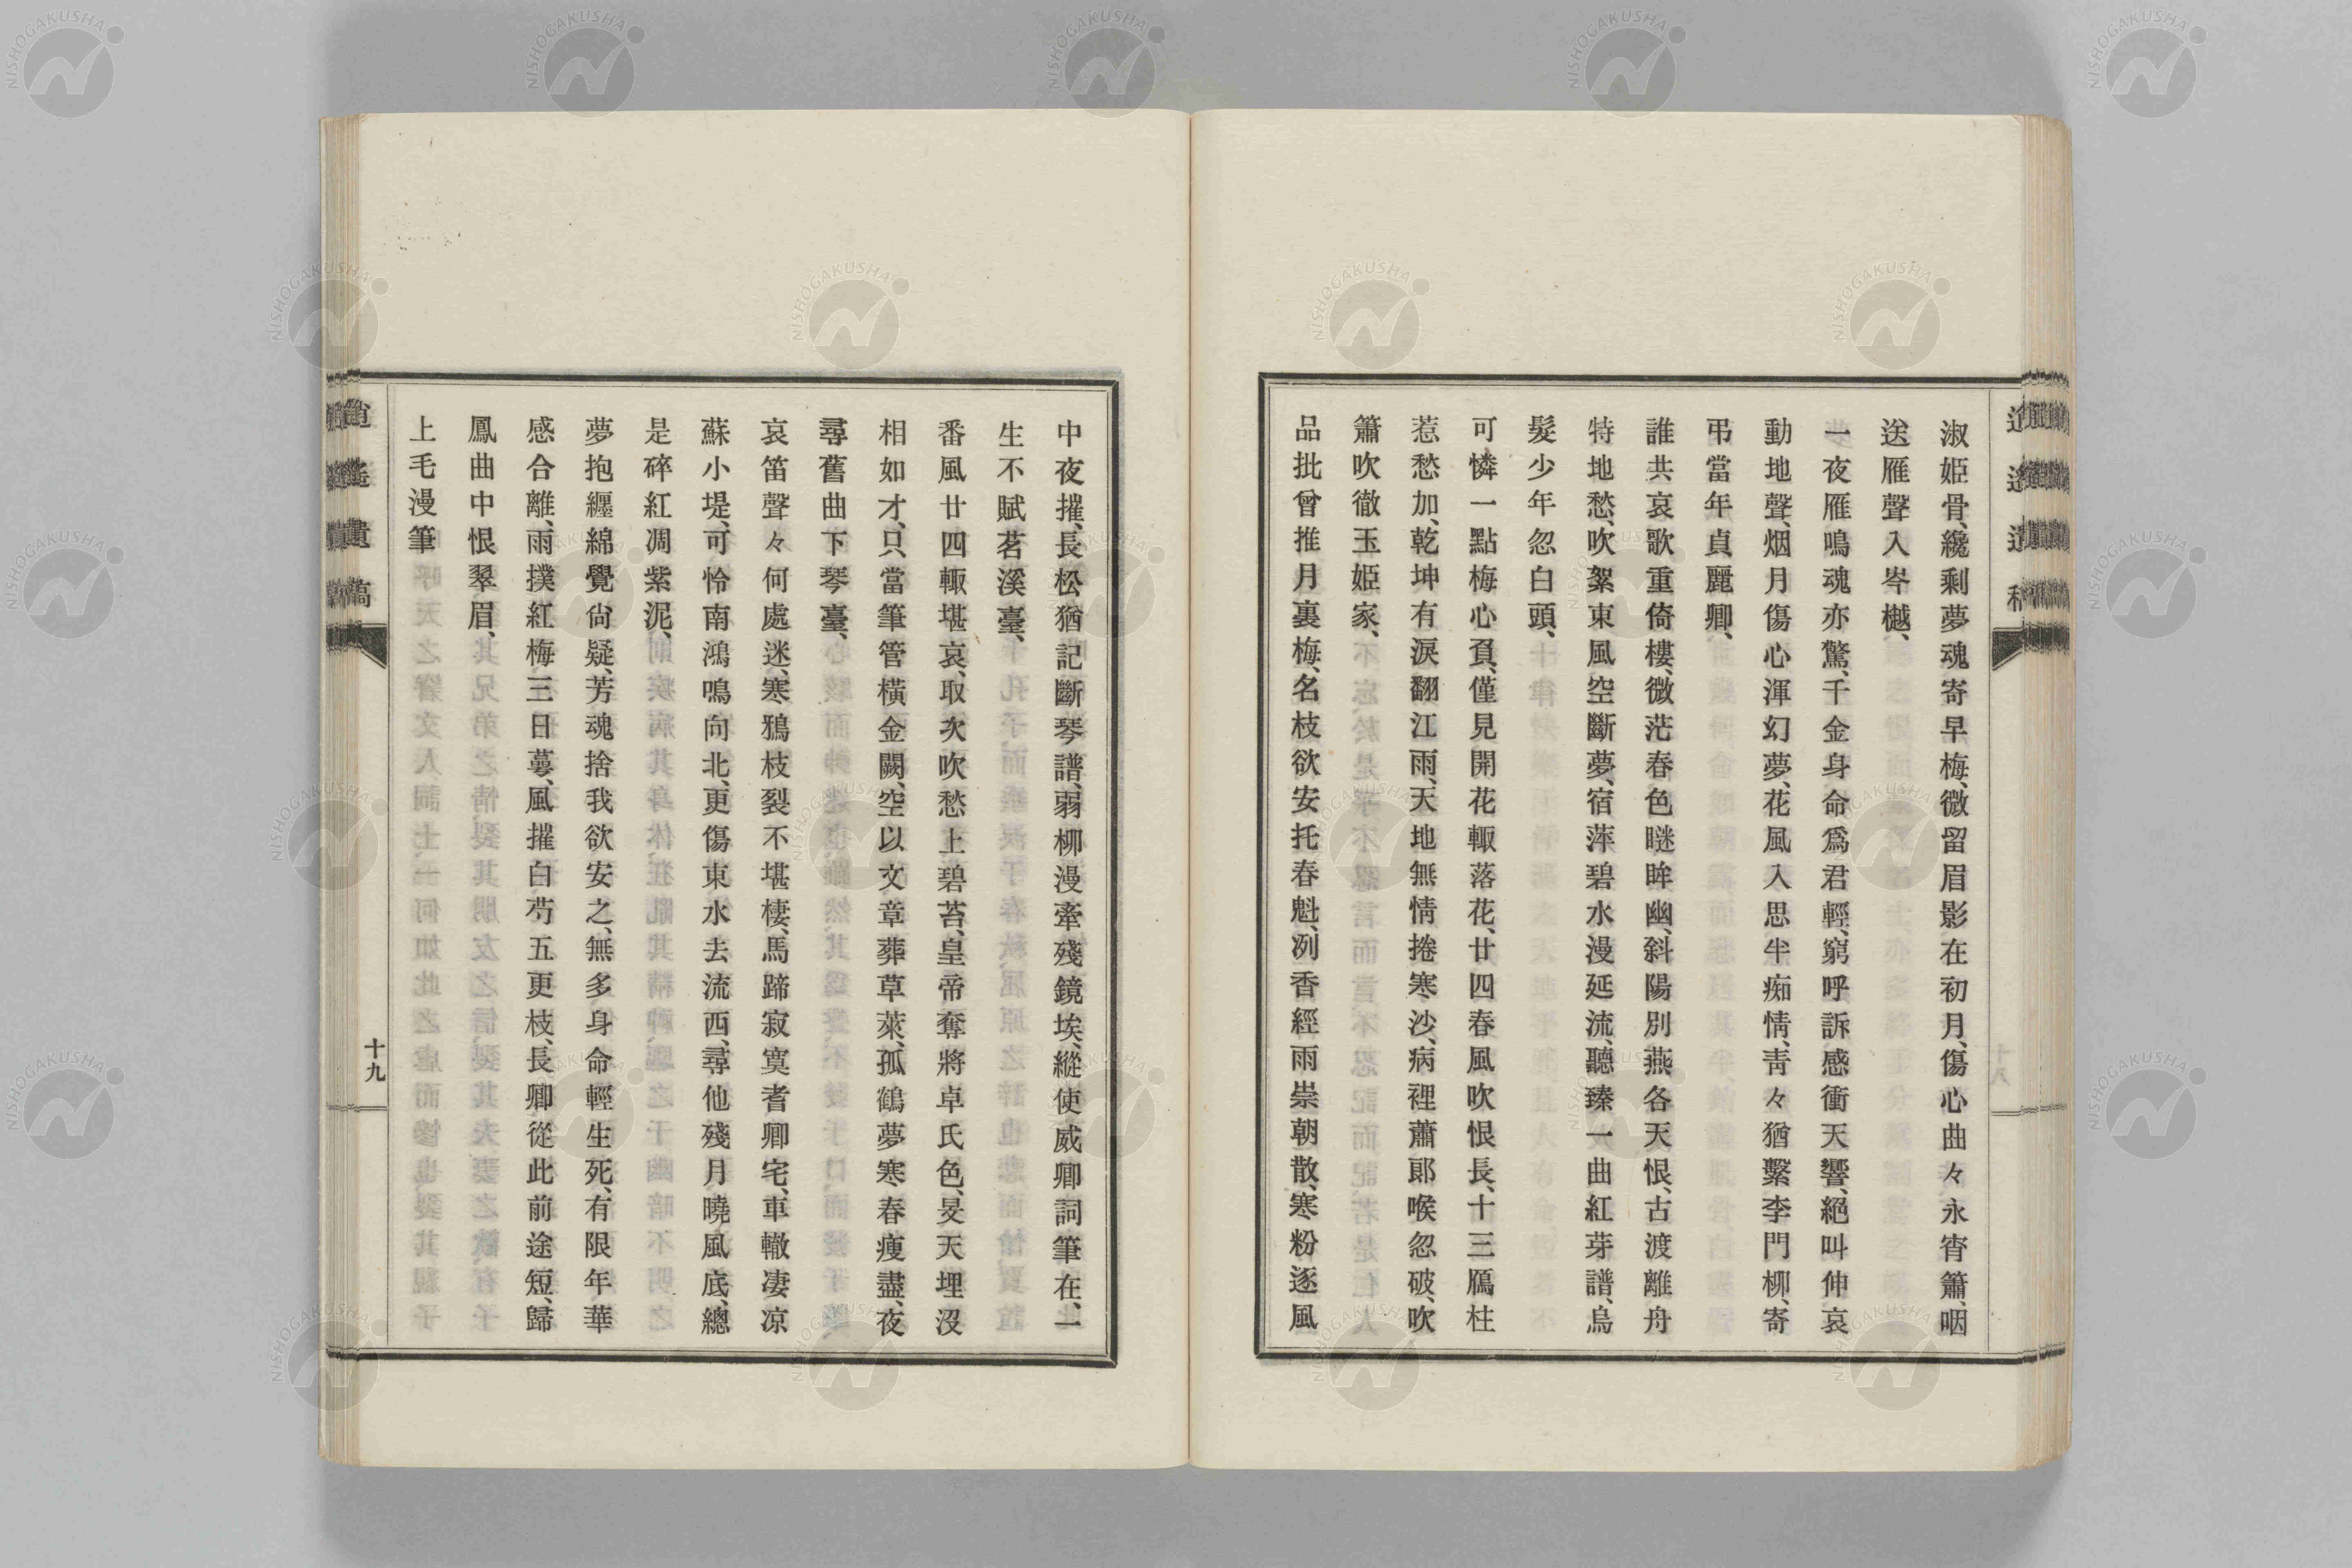 淑姬骨、纔剩夢魂寄早梅、微留眉影在初月、傷心曲々永宵簫、咽
送雁聲入岑樾、
一夜雁鳴魂亦驚、千金身命爲君輕、窮呼訴感衝天響、絕叫伸哀
動地聲、烟月傷心渾幻夢、花風入思半痴情、靑々猶繫李門柳、寄
弔當年貞麗卿、
誰共哀歌重倚樓、微茫春色瞇眸幽、斜陽別燕各天恨、古渡離舟
特地愁、吹絮東風空斷夢、宿萍碧水漫延流、聽臻一曲紅芽譜、烏
髮少年忽白頭、
可憐一點梅心負、僅見開花輙落花、廿四春風吹恨長、十三鴈柱
惹愁加、乾坤有淚翻江雨、天地無情捲寒沙、病裡蕭郞喉忽破、吹
簫吹徹玉姬家、
品批曾推月裏梅、名枝欲安托春魁、冽香經雨崇朝散、寒粉逐風
中夜摧、長松猶記斷琴譜、弱柳漫牽殘鏡埃、縱使威卿詞筆在、一
生不賦茗溪臺、
番風廿四輙堪哀、取次吹愁上碧苔、皇帝奪將卓氏色、旻天埋沒
相如才、只當筆管橫金闕、空以文章葬草萊、孤鶴夢寒春瘦盡、夜
尋舊曲下琴臺、
哀笛聲々何處迷、寒鴉枝裂不堪棲、馬蹄寂寞耆卿宅、車轍凄凉
蘇小堤、可怜南鴻鳴向北、更傷東水去流西、尋他殘月曉風底、總
是碎紅凋紫泥、
夢抱纒綿覺尙疑、芳魂捨我欲安之、無多身命輕生死、有限年華
感合離、雨撲紅梅三日蕚、風摧白芍五更枝、長卿從此前途短、歸
鳳曲中恨翠眉、
上毛漫筆
十九